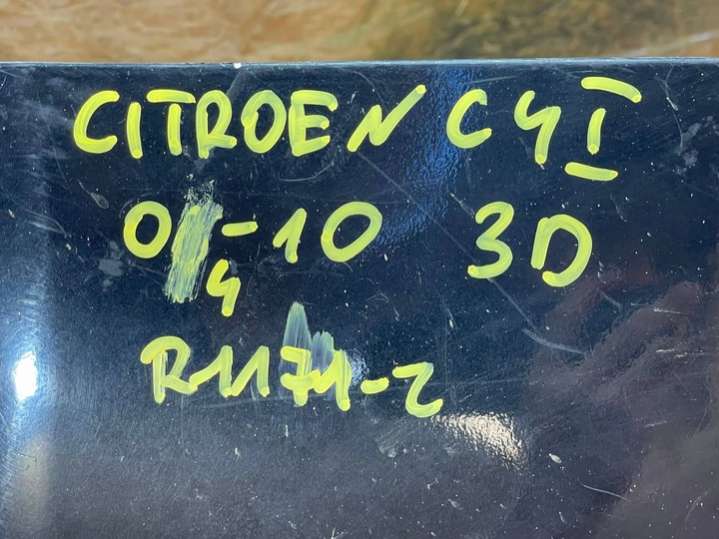 CITROEN C4 I
04-10 3D
R1171-2